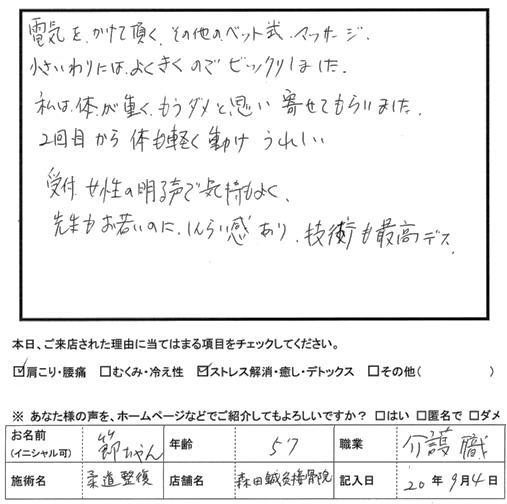 電気を、かけて頂く、その他の、ベット式、マッサージ、
小さいわりには、よくきくのでビックリしました。
私は、体が重く、もうダメと思い寄せてもらいました。
2回目から体も軽く動け うれしい
受付 女性の明る声で気持もよく、
先生もお若いのに、しんらい感あり、技術も最高デス。
本日、ご来店された理由に当てはまる項目をチェックしてください。
☑肩こり・腰痛 □むくみ・冷え性 ☑ストレス解消・癒し・デトックス □その他( )
※ あなた様の声を、ホームページなどでご紹介してもよろしいですか? □はい □匿名で □ダメ
お名前 (イニシャル可) 節ちゃん 年齢 57 職業 介護職
施術名 柔道整復 店舗名 森田鍼灸接骨院 記入日 '20年9月4日